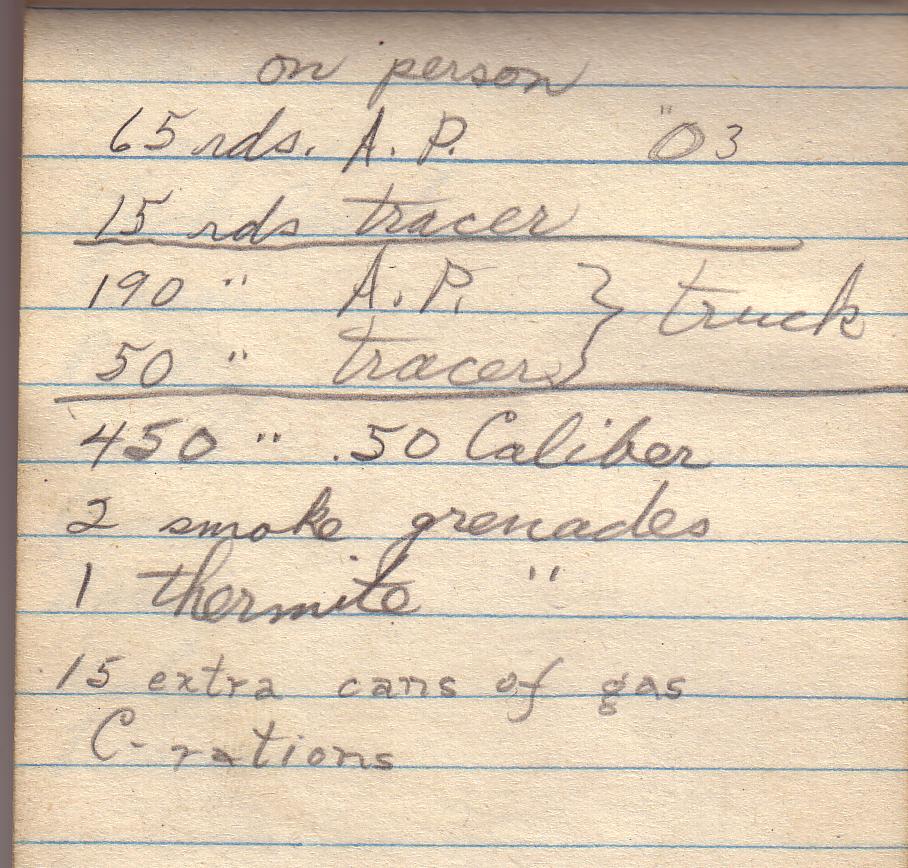 on person
65 rds. A. P. "03
15 rds tracer
190 " A. P. } truck
50 " tracer
450 " .50 Caliber
2 smoke grenades
1 thermite "
15 extra cans of gas
C-rations